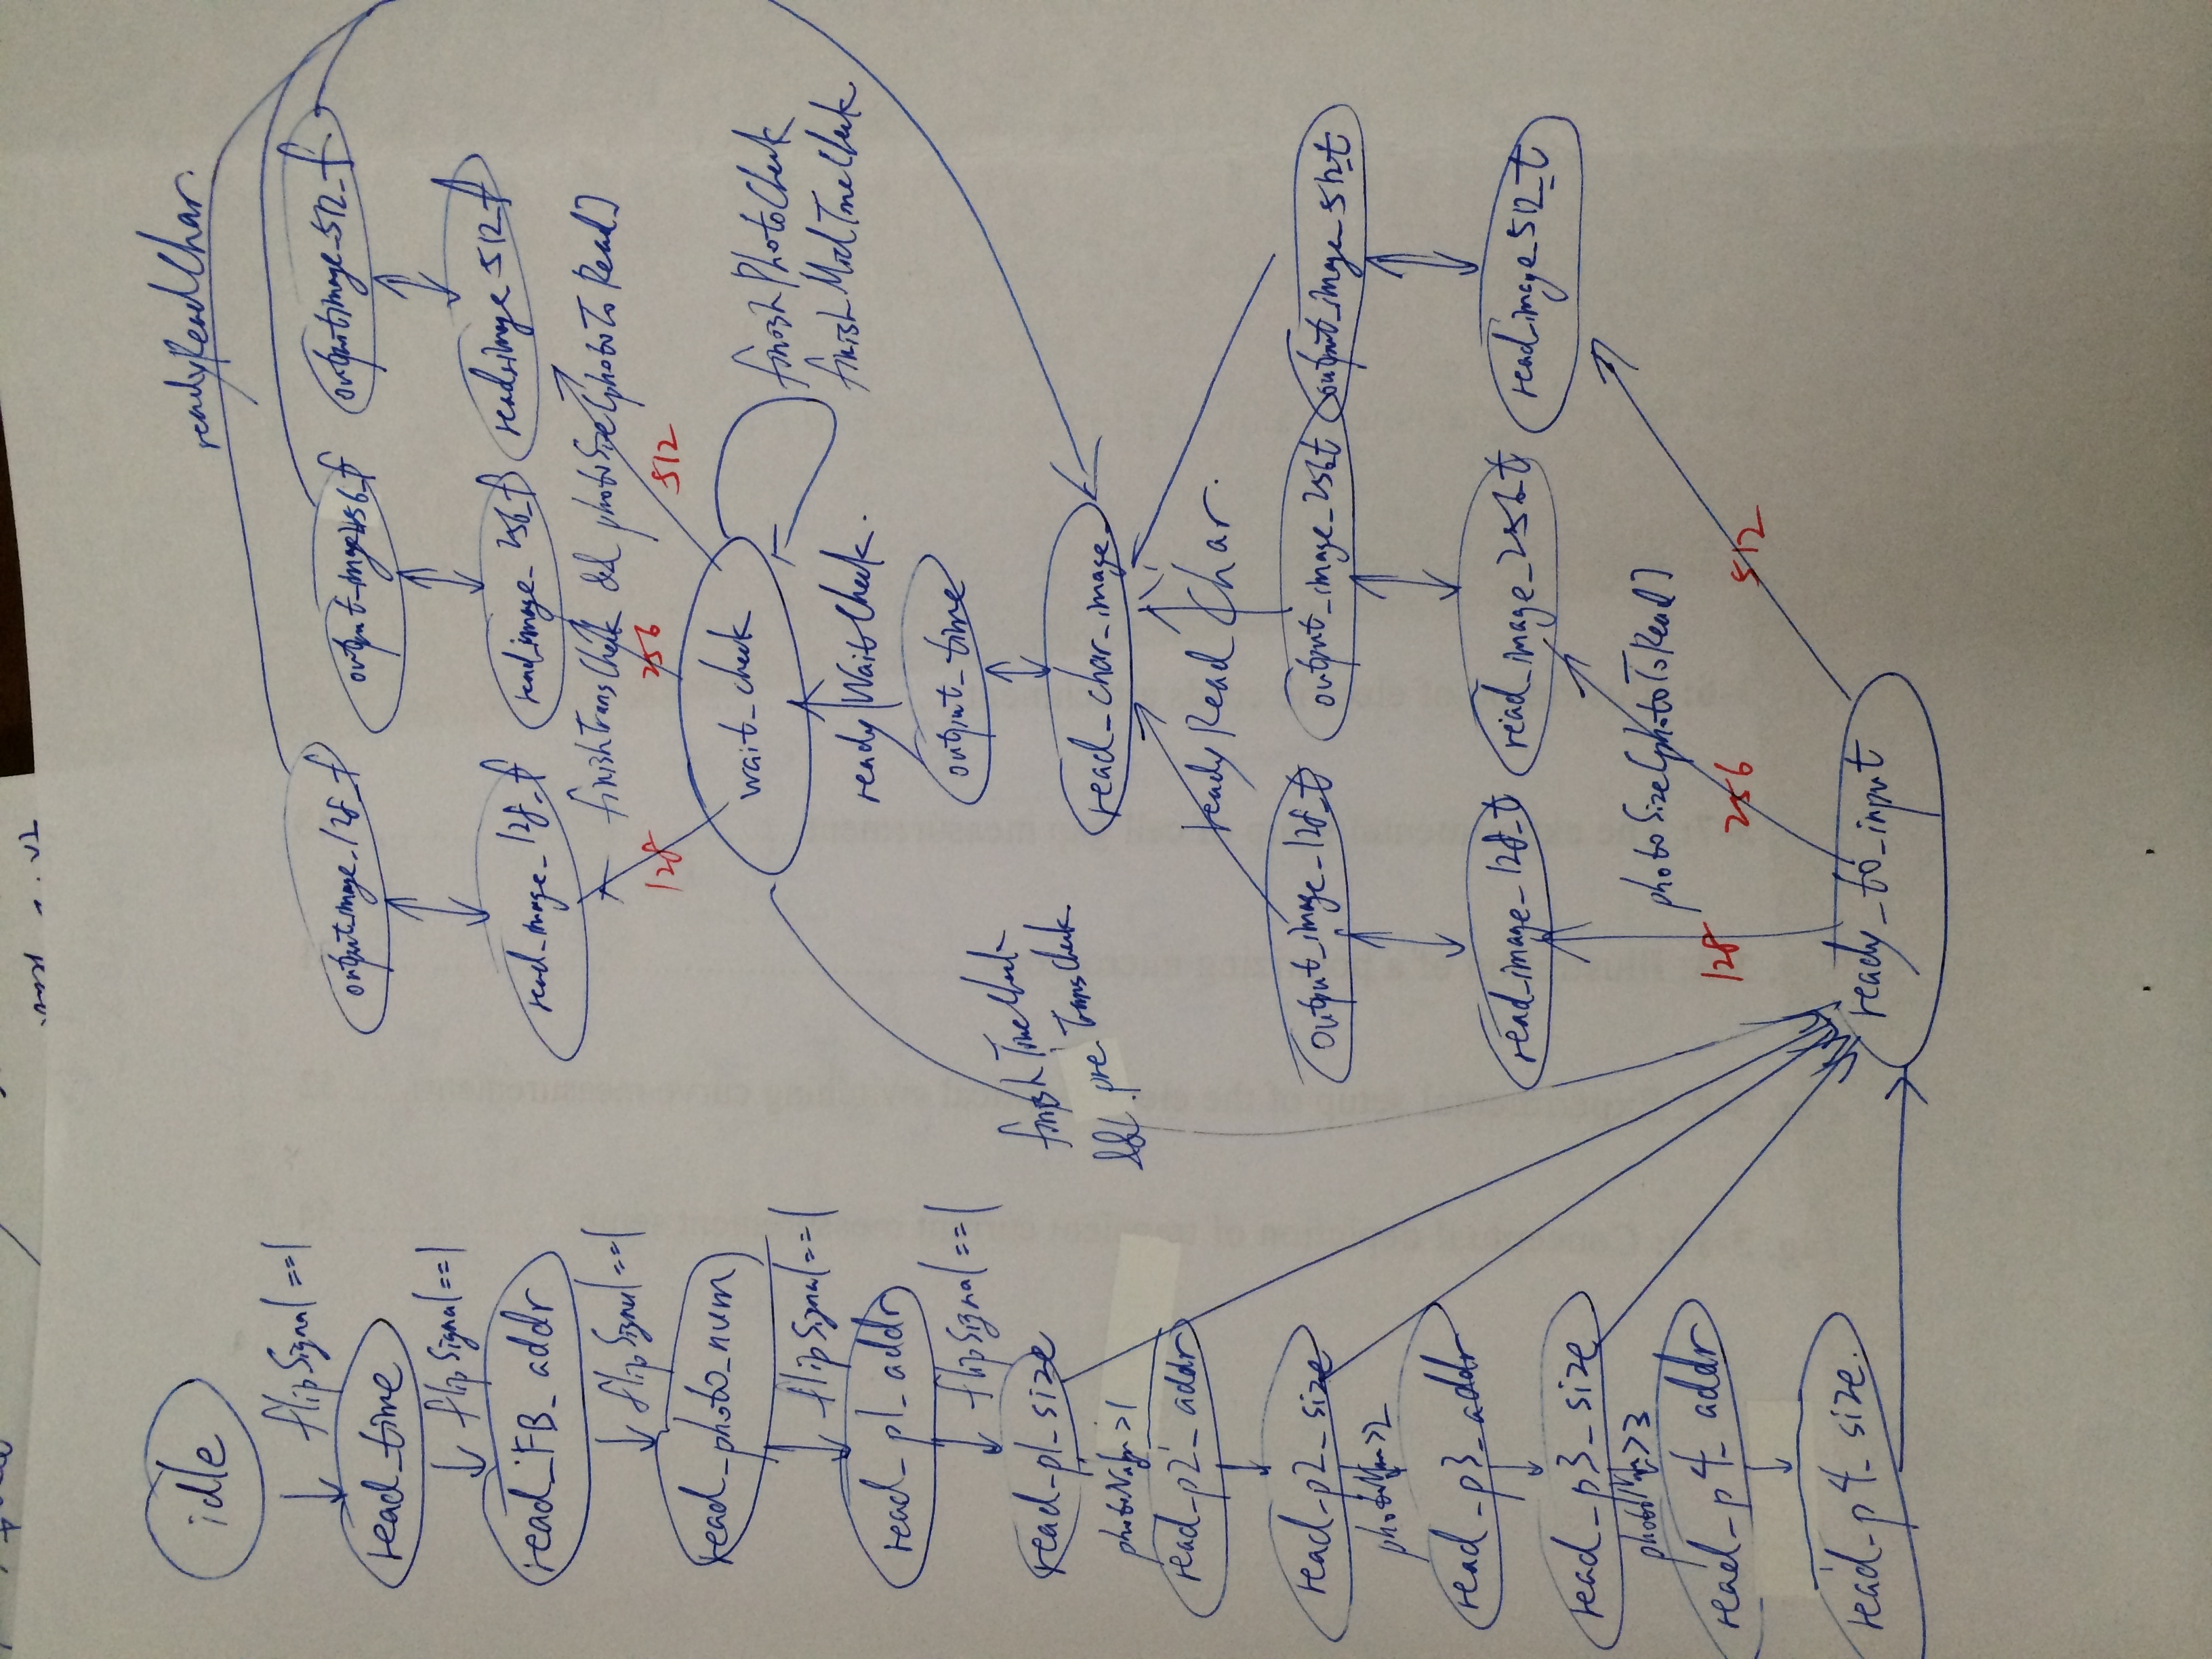 idle
flipSignal==1
read_time
flipSignal==1
read_FB_addr
flipSignal==1
read_photo_num
flipSignal==1
read_p1_addr
flipSignal==1
read_p1_size
photoNum>1
read_p2_addr
read_p2_size
photoNum>2
read_p3_addr
read_p3_size
photoNum>3
read_p4_addr
read_p4_size.
readyReadChar.
output_image_128_f
output_image_256_f
output_image_512_f
read_image_128_f
read_image_256_f
read_image_512_f
finishTransCheck && photoSize[photoToRead]
128
256
512
wait_check
finishPhotoCheck
finishMidTimeCheck
readyWaitCheck.
output_time
finishTimeCheck
&& preTransCheck
read_char_image
readyReadChar.
output_image_128_t
output_image_256_t
output_image_512_t
read_image_128_t
read_image_256_t
read_image_512_t
photoSize[photoToRead]
128
256
512
ready_to_input